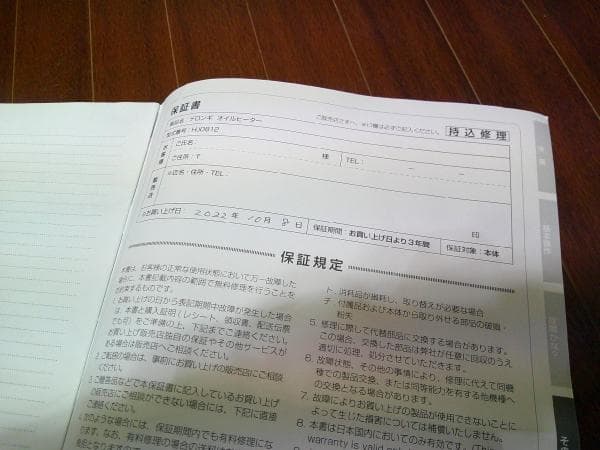 保証書
ご販売店さまへ、※印欄は必ずご記入ください。 持込修理
製品名 デロンギ オイルヒーター
型式番号 HJ0812
お客様 ご氏名: 様
ご住所:〒 TEL: － －
販売店 ※店名・住所・TEL: 印
※お買い上げ日: 2022年 10月 8日 保証期間:お買い上げ日より3年間 保証対象:本体
保証規定
本書は、お客様の正常な使用状態において万一故障した
場合に、本書記載内容の範囲で無料修理を行うことを
お約束するものです。
お買い上げの日から表記期間中故障が発生した場合
は、本書と購入証明(レシート、領収書、配送伝票
でも可)をご準備の上、下記までご連絡ください。
お買い上げ販売店独自の保証やその他サービスが
ある場合は販売店へご相談ください。
2. ご転居の場合は、事前にお買い上げの販売店にご相談
ください。
3. ご贈答品などで本保証書に記入しているお買い上げ
の販売店にご相談ができない場合には、下記に直接
ご連絡ください。
4. 次のような場合には、保証期間内でも有料修理にな
ります。なお、有料修理の場合の送料は
ト. 消耗品が損耗し、取り替えが必要な場合
チ. 付属品および本体から取り外せる部品の破損・
紛失
5. 修理に際して代替部品に交換する場合があります。
この場合、交換した部品は弊社が任意に回収のうえ
適切に処理、処分させていただきます。
6. 故障状態、その他の事情により、修理に代えて同機
種での製品交換、または同等能力を有する他機種へ
の交換となる場合があります。
7. 故障によりお買い上げの製品が使用できないことに
よって生じた損害については補償いたしません。
8. 本書は日本国内においてのみ有効です。(This
warranty is valid only
基本操作
故障かな?